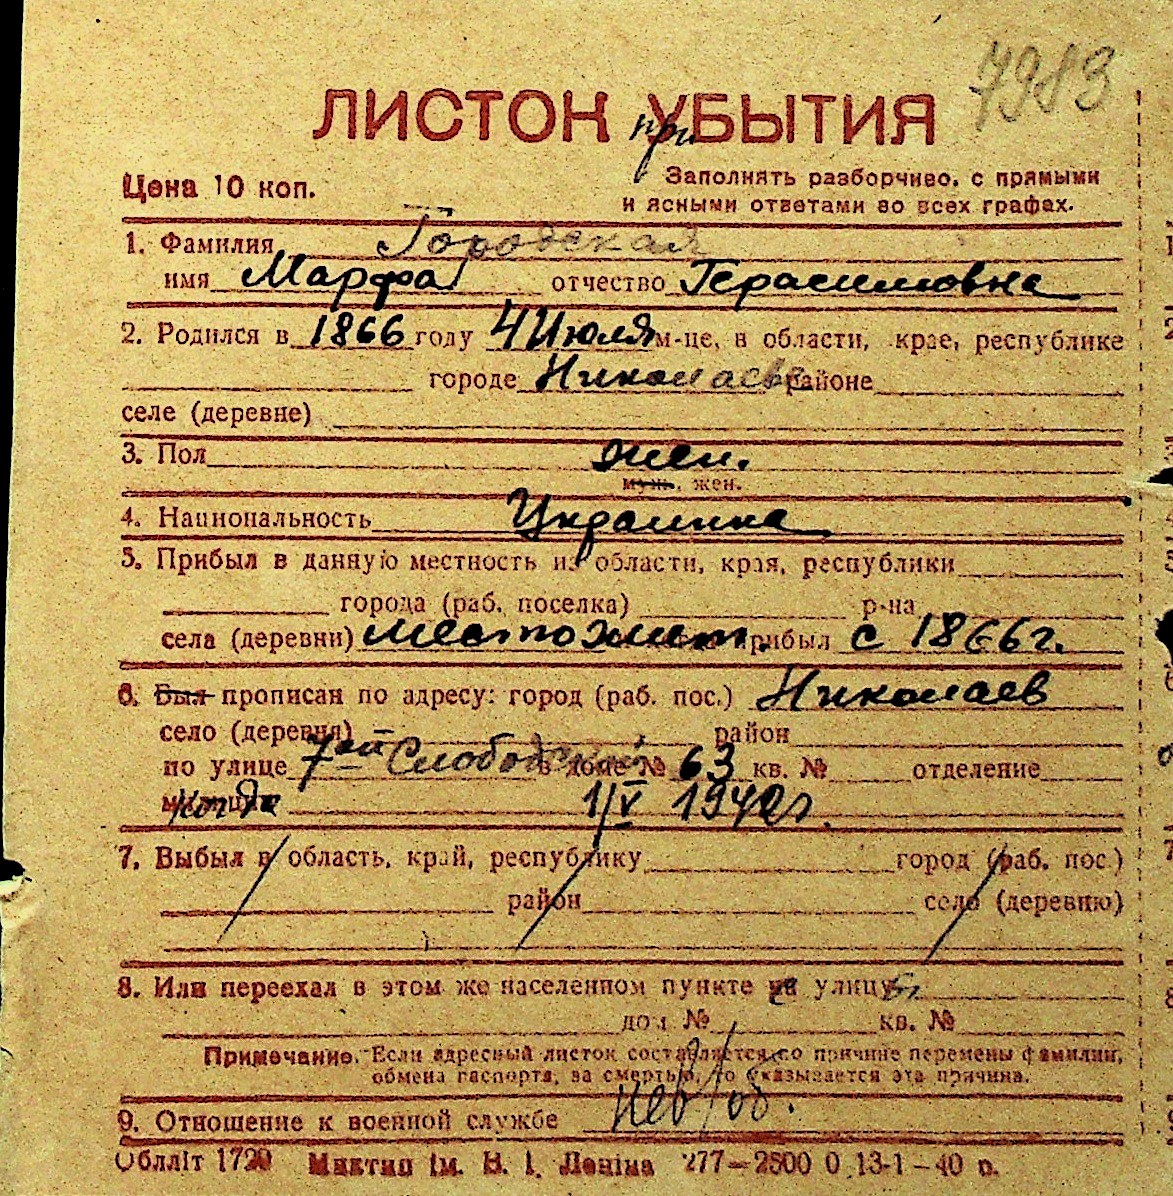 7983
ЛИСТОК при УБЫТИЯ
Цена 10 коп.
Заполнять разборчиво, с прямыми
и ясными ответами во всех графах.
1. Фамилия Городская
имя Марфа отчество Герасимовна
2. Родился в 1866 году 4 Июля м-це, в области, крае, республике
городе Николаеве районе
селе (деревне)
3. Пол жен.
муж. жен.
4. Национальность Украинка
5. Прибыл в данную местность из области, края, республики
города (раб. поселка) р-на
села (деревни) местожит. прибыл с 1866 г.
6. Был прописан по адресу: город (раб. пос.) Николаев
село (деревня) район
по улице 7ой Слободской в доме № 63 кв. № отделение
милиции когда 1/V 1942 г.
7. Выбыл в область, край, республику город (раб. пос.)
район село (деревню)
8. Или переехал в этом же населенном пункте на улицу
дом № кв. №
Примечание. Если адресный листок составляется по причине перемены фамилии,
обмена паспорта, за смертью, то указывается эта причина.
9. Отношение к военной службе нев/об.
Облліт 1720 Миктип ім. В. І. Леніна 277—2800 0 13-1—40 р.